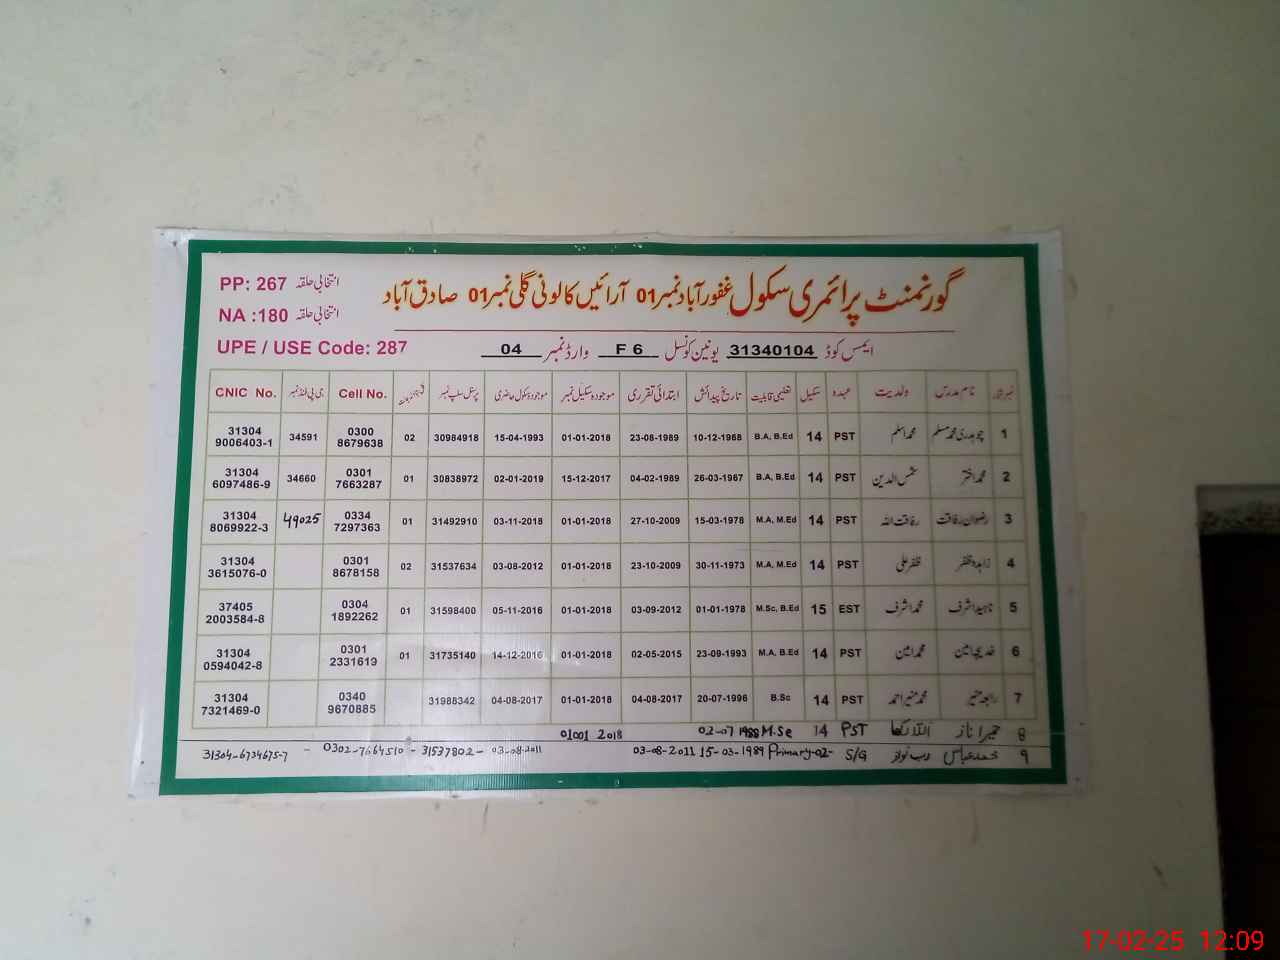 گورنمنٹ پرائمری سکول غفور آباد نمبر 01 آرائیں کالونی گلی نمبر 01 صادق آباد
انتخابی حلقہ PP: 267
انتخابی حلقہ NA :180
UPE / USE Code: 287
ایمس کوڈ 31340104 یونین کونسل F 6 وارڈ نمبر 04
نمبر شمار نام مدرس ولدیت عہدہ سکیل تعلیمی قابلیت تاریخ پیدائش ابتدائی تقرری موجودہ سکیل نمبر موجودہ سکول حاضری پرسنل سلپ نمبر Cell No. جی پی فنڈ نمبر CNIC No.
1 چوہدری محمد مسلم محمد اسلم PST 14 B.A, B.Ed 10-12-1968 23-08-1989 01-01-2018 15-04-1993 30984918 02 0300 8679638 34591 31304 9006403-1
2 محمد اختر شمس الدین PST 14 B.A, B.Ed 26-03-1967 04-02-1989 15-12-2017 02-01-2019 30838972 01 0301 7663287 34660 31304 6097486-9
3 رضوان رفاقت رفاقت اللہ PST 14 M.A, M.Ed 15-03-1978 27-10-2009 01-01-2018 03-11-2018 31492910 01 0334 7297363 49025 31304 8069922-3
4 زاہدہ ظفر ظفر علی PST 14 M.A, M.Ed 30-11-1973 23-10-2009 01-01-2018 03-08-2012 31537634 02 0301 8678158 31304 3615076-0
5 ناہید اشرف محمد اشرف EST 15 M.Sc, B.Ed 01-01-1978 03-09-2012 01-01-2018 05-11-2016 31598400 01 0304 1892262 37405 2003584-8
6 خدیجہ امین محمد امین PST 14 M.A, B.Ed 23-09-1993 02-05-2015 01-01-2018 14-12-2016 31735140 01 0301 2331619 31304 0594042-8
7 رابعہ منیر محمد منیر احمد PST 14 B.Sc 20-07-1996 04-08-2017 01-01-2018 04-08-2017 31988342 0340 9670885 31304 7321469-0
8 حمیرا ناز اللہ رکھا PST 14 M.Se 02-07 1988 01001 2018
9 محمد عباس رب نواز S/G Primary-02- 15-03-1989 03-08-2011 03-08-2011 31537802- 0302-7664510 - 31304-6734675-7
17-02-25 12:09